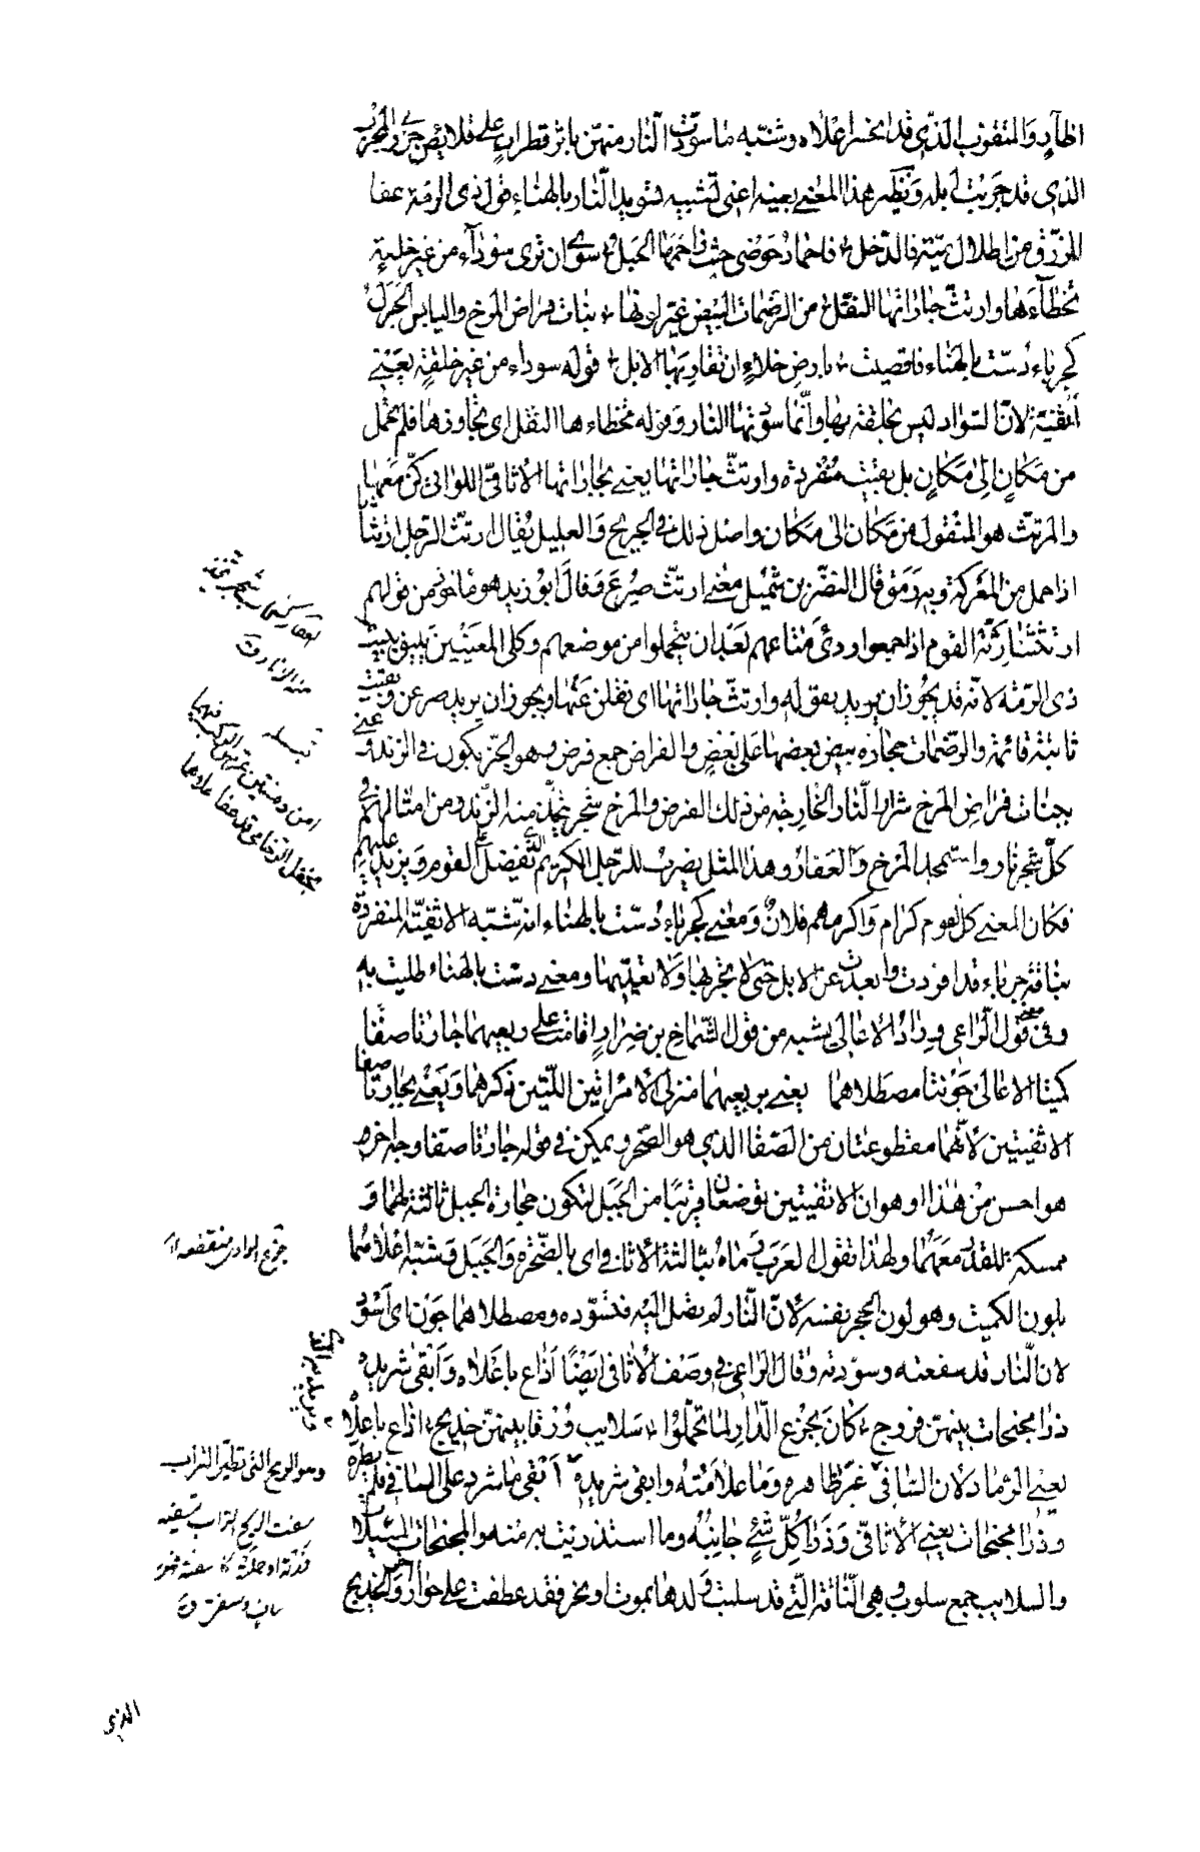 اظآر والمثقوب الذي قد انحسر اعلاه وشبّه ما سوّدت النار منهنّ باثر قطران على قلائص جرّ والمجرب
الذي قد جربت ابله ونظير هذا المعنى بعينه اعني تشبيه تسويد النار بالهناء قول ذي الرمة عفا
الزرق من اطلال ميّة فالدخل فاجماد حوضى حيث زاحمها الحبل سوى ان ترى سوداء من غير خلقة
تخطآءها وارتثّ جاراتها النقل من الرضمات البيض غيّر لونها بنات فراض المرخ واليابس الجزل
كجرباء دسّت بالهناء فاقصيت بارض خلاء ان تقاربها الابل قوله سوداء من غير خلقة يعني
اثفيّة لانّ السواد ليس بخلقة بها وانّما سوّدتها النار وقوله تخطاءها النقل اي تجاوزها فلم تحمل
من مكان الى مكان بل بقيت منفردة وارتثّ جاراتها يعني بجاراتها الاثافيّ اللواتي كنّ معها
والمرتثّ هو المنقول من مكان الى مكان واصل ذلك في الجريح والعليل يقال ارتثّ الرجل ارتثاثا
اذا حمل من المعركة وبه رمق قال النضر بن شميل معنى ارتثّ صرع وقال ابو زيد هو ماخوذ من قولهم
ارتثثنا رثّة القوم اذا جمعوا ردي متاعهم بعد ان يتحملوا من موضعهم وكلى المعنيين يليق ببيت
ذي الرمّة لانّه قد يجوز ان يريد بقوله وارتثّ جاراتها اي نقلن عنها ويجوز ان يريد صرعن وبقيت
ثابتة قائمة والرضمات حجارة بيض بعضها على بعض والفراض جمع فرض وهو الحزّ يكون في الزند وعنى
ببنات فراض المرخ شرار النار الخارجة من ذلك الفرض والمرخ شجر يتّخذ منه الزند ومن امثالهم في
كلّ شجر نار واستمجد المرخ والعفار وهذا المثل يضرب للرجل الكريم الذي يفضل القوم ويزيد عليهم
فكان المعنى كل القوم كرام واكرمهم فلان ومعنى كجرباء دسّت بالهناء انه شبّه الاثفيّة المنفردة
بناقة جرباء قد افردت وابعدت عن الابل حتى لا تجربها ولا تعديها ومعنى دسّت بالهناء طليت به
وفي معنى قول الراعي وراد الاعالي يشبه من قول الشماخ بن ضرار اقامت على ربعيهما جارتا صفا
كميتا الاعالي جونتا مصطلاهما يعني بربعيهما منزلي الامراتين اللتين ذكرهما ويعني بجارتا صفا
الاثفيتين لانّهما مقطوعتان من الصفا الذي هو الصخر ويمكن في قوله جارتا صفا وجه اخر
هو احسن من هذا وهو ان الاثفيتين توضعان قريبا من الجبل لتكون حجارة الجبل ثالثة لهما و
ممسكة للقدر معهما ولهذا تقول العرب رماه بثالثة الاثافي اي بالصخرة والجبل وشبّه اعلاهما
بلون الكميت وهو لون الحجر نفسه لانّ النار لم تصل اليه فتسوّده ومصطلاهما جون اي اسود
لان النار قد سفعته وسوّدته وقال الراعي في وصف الاثافي ايضًا اذاع باعلاه وابقى شريده
ذرا مجنحات بينهنّ فروج كان بجزع الدار لما تحمّلوا سلايب ورقا بينهنّ خديج اذاع باعلاه
يعني الرماد لان السافي غيّر ظاهره وما علا متنه وابقى شريده ابقى ما شرد على السافي فلم يطره
وذرا مجنحات يعني الاثافيّ وذرا كلّ شيء جانبه وما استذريت به منه والمجنحات المسبلات
والسلايب جمع سلوب وهي الناقة التي قد سلبت ولدها بموت او نحر فقد عطفت على حوار اخر والخديج
العفار كسحاب شجر يتخذ
منه الزناد ق
جزع الوادي منعطفه
وهو الريح التي تطير التراب
سفت الريح التراب تسفيه
ذرته او حملته كاسفته فهو
ساف وسفي ق
الذي